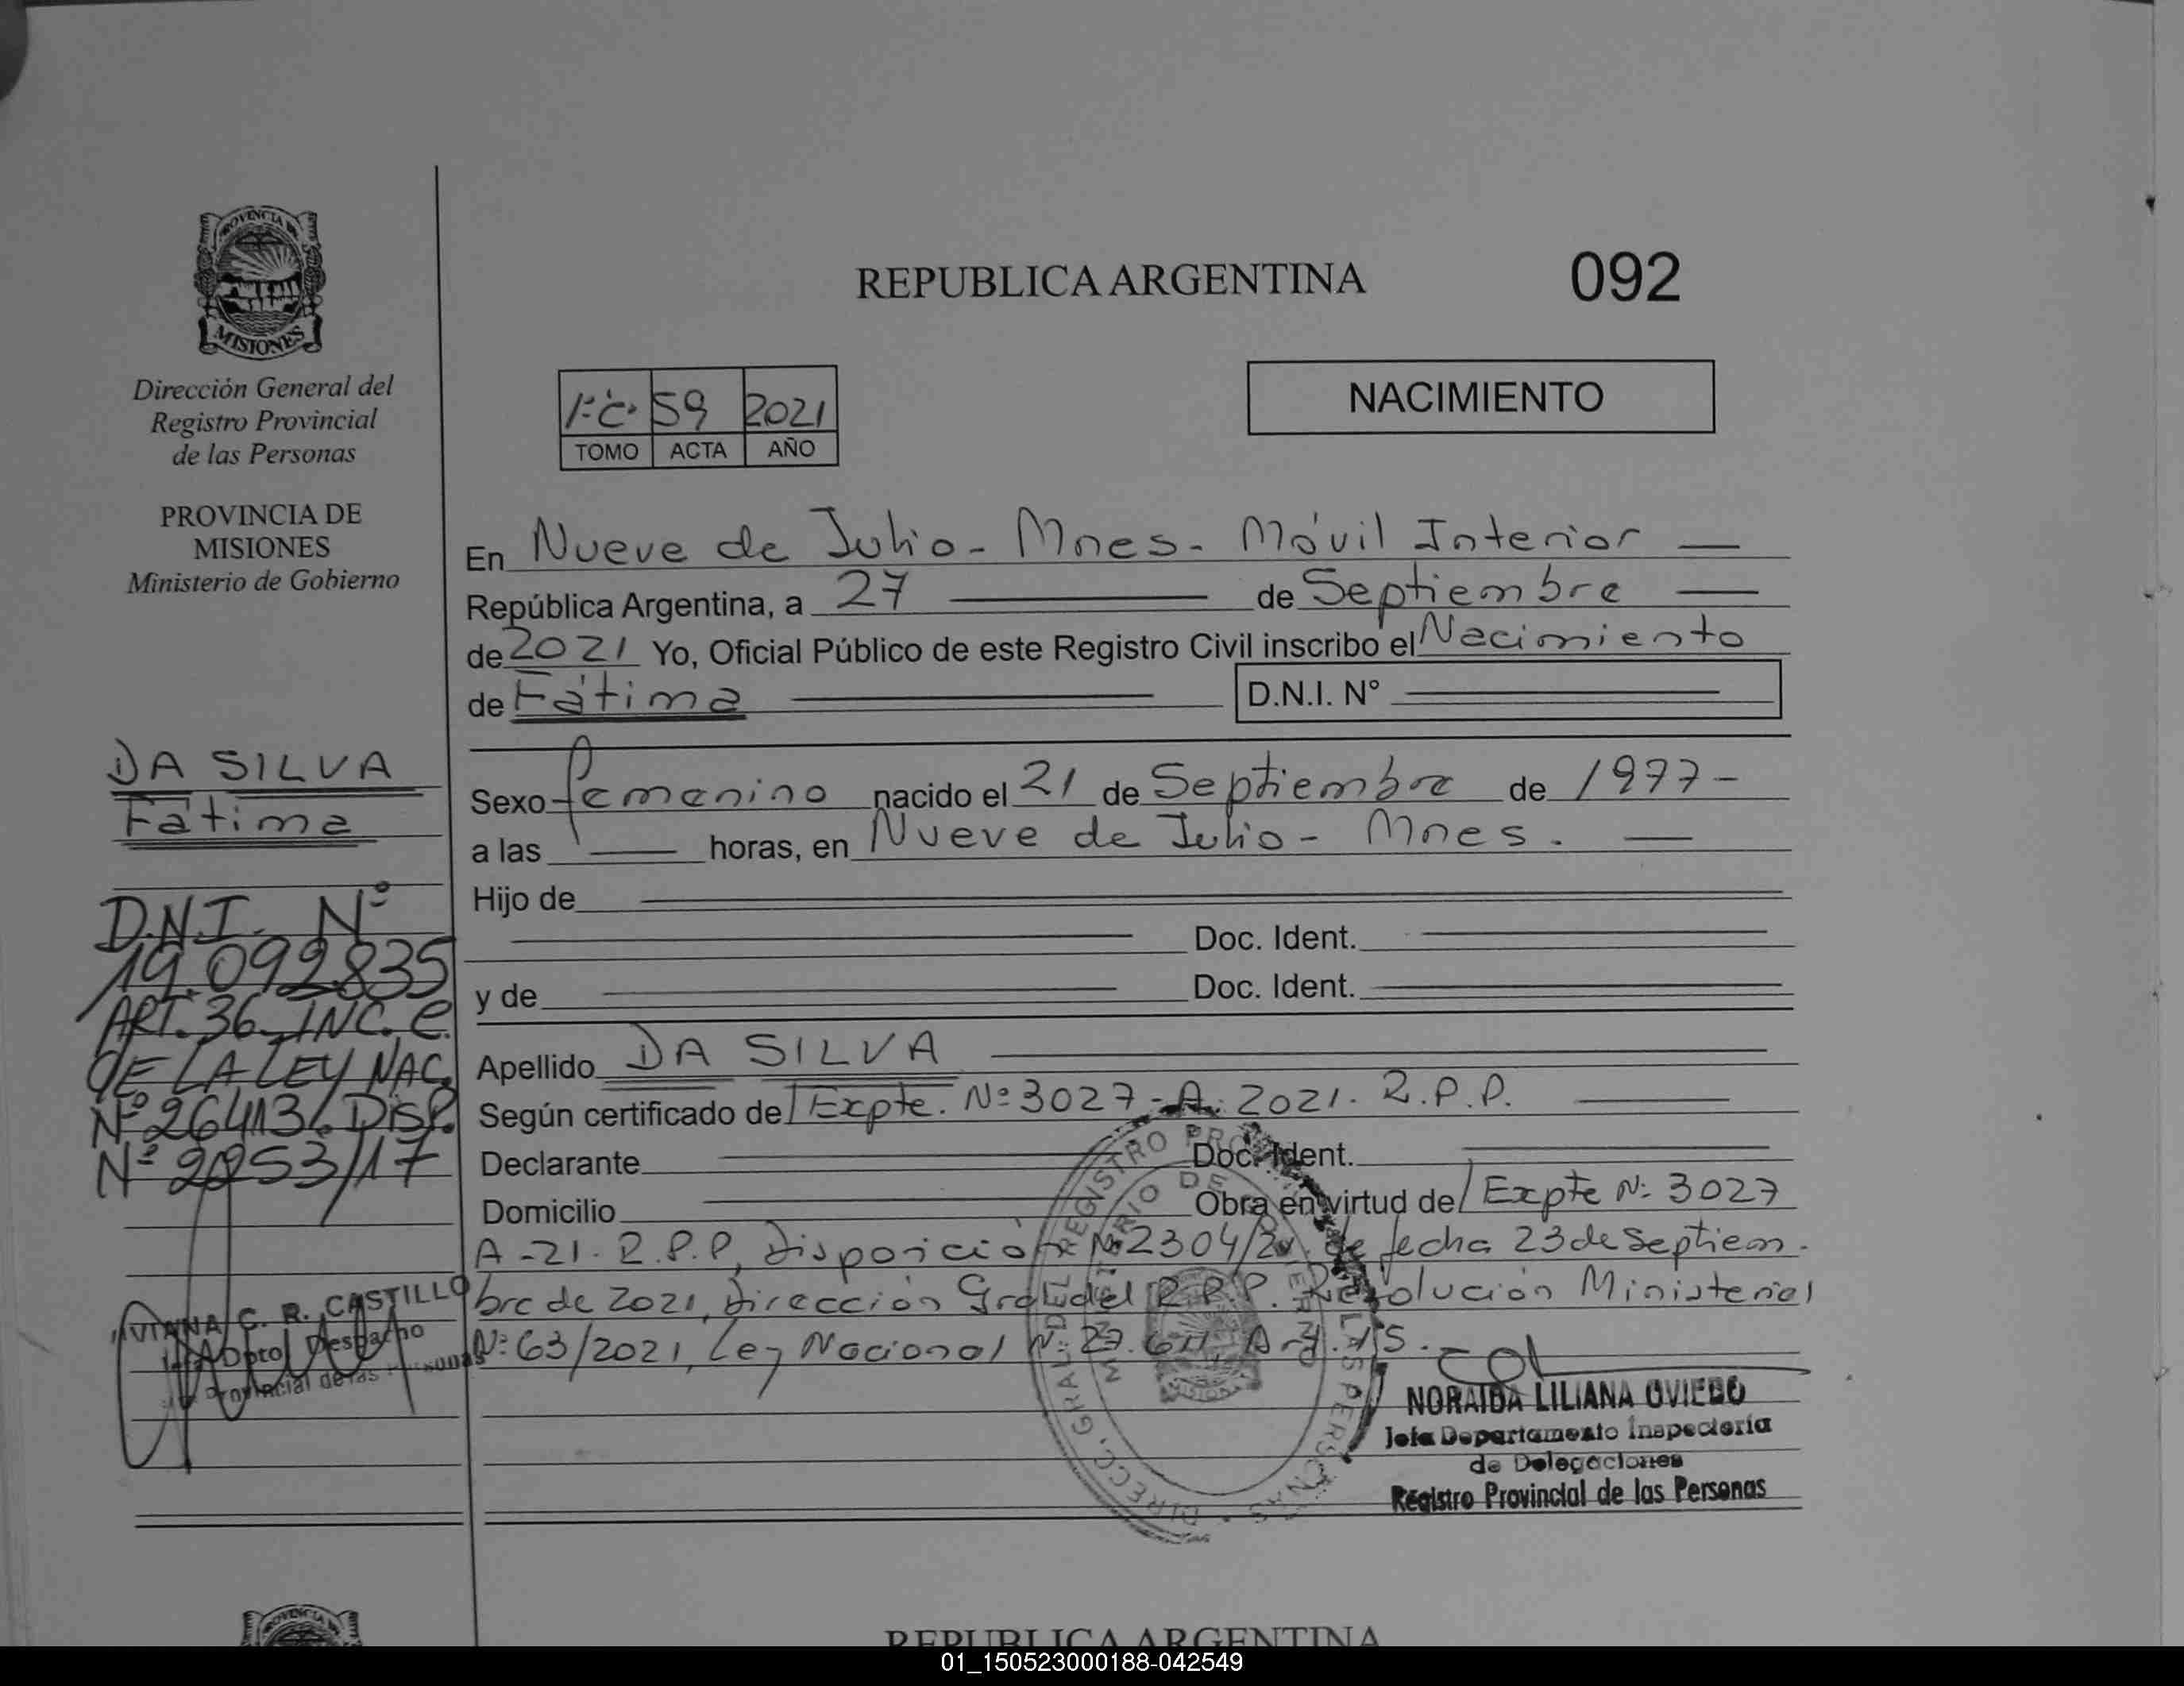 PROVINCIA DE
MISIONES
Dirección General del
Registro Provincial
de las Personas
PROVINCIA DE
MISIONES
Ministerio de Gobierno
DA SILVA
Fátima
D.N.I. Nº
19.092.835
ART. 36 INC. C.
DE LA LEY NAC.
Nº 26413/. DISP.
Nº 2253/17
C. R. CASTILLO
Dpto Despacho
Provincial de las
REPUBLICA ARGENTINA
092
59 2021
TOMO ACTA AÑO
NACIMIENTO
En Nueve de Julio - Mnes - Móvil Interior
República Argentina, a 27 de Septiembre
de 2021 Yo, Oficial Público de este Registro Civil inscribo el Nacimiento
de Fátima D.N.I. N°
Sexo femenino nacido el 21 de Septiembre de 1977 -
a las horas, en Nueve de Julio - Mnes.
Hijo de
Doc. Ident.
y de Doc. Ident.
Apellido DA SILVA
Según certificado de Expte. Nº 3027 - A. 2021. R.P.P.
Declarante Doc. Ident.
Domicilio Obra en virtud de Expte Nº 3027
A - 21. R.P.P, Disposición Nº 2304/21 de fecha 23 de Septiem-
bre de 2021, Dirección Gral del R.P.P. Resolución Ministerial
Nº 63/2021, Ley Nacional Nº 27.611, Art. 15.
DIRECC. GRAL. DEL REGISTRO PROV. DE LAS PERSONAS
MINISTERIO DE GOBIERNO
MISIONES
NORAIDA LILIANA OVIEDO
Jefa Departamento Inspectoría
de Delegaciones
Registro Provincial de las Personas
REPUBLICA ARGENTINA
01_150523000188-042549